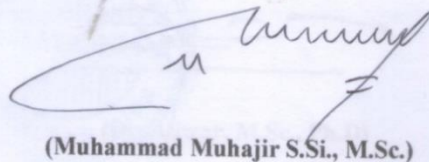 (Muhammad Muhajir S.Si., M.Sc.)